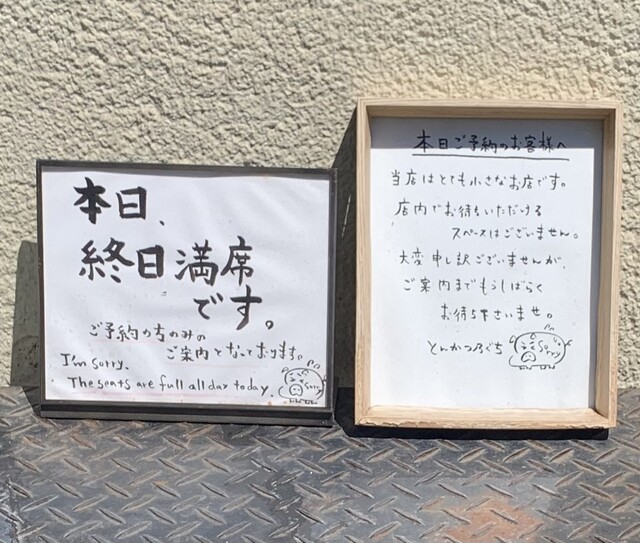 本日、
終日満席
です。
ご予約の方のみの
ご案内となっております。
I'm sorry.
The seats are full all day today.
sorry
本日ご予約のお客様へ
当店はとても小さなお店です。
店内でお待ちいただける
スペースはございません。
大変申し訳ございませんが、
ご案内までもうしばらく
お待ち下さいませ。
とんかつ乃ぐち
sorry